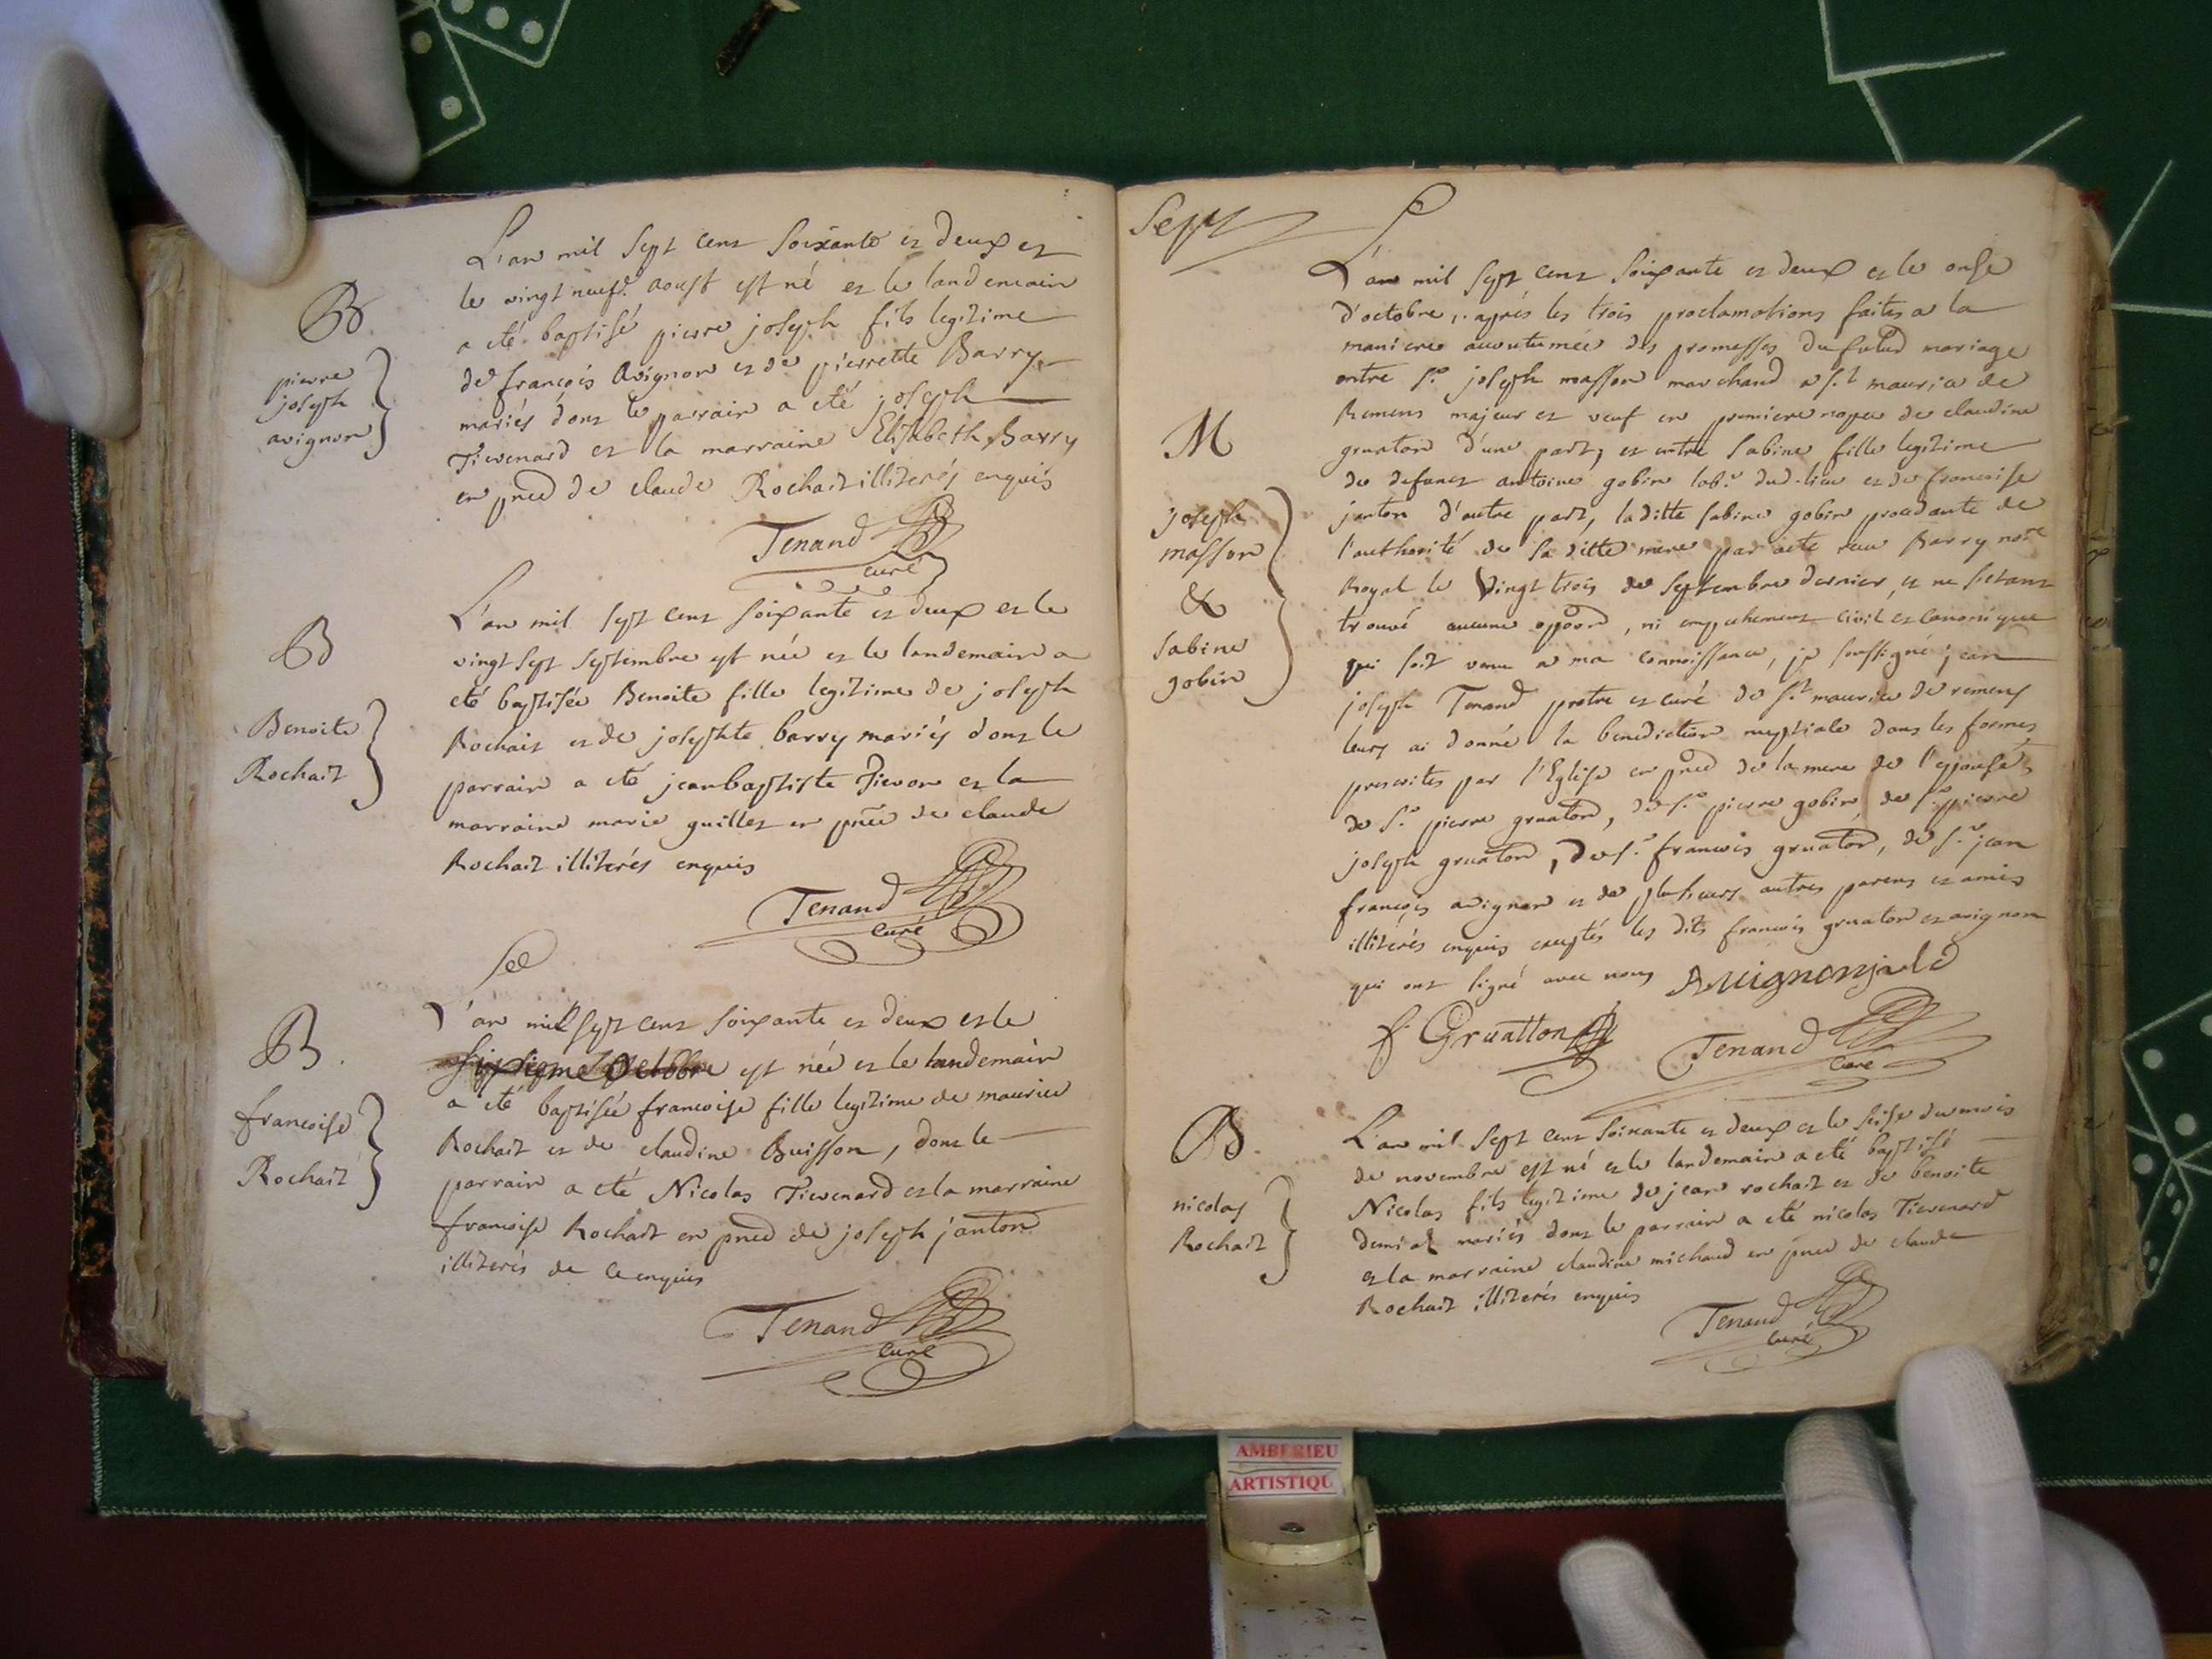 B
pierre
joseph
avignon
L'an mil sept cent soixante et deux et
le vingt neuf.e aoust est né et le landemain
a eté baptisé pierre joseph fils legitime
de françois Avignon et de pierrette Barry
mariés dont le parrain a eté joseph
Tievenard et la marraine Elisabeth Barry
en pnce de claude Rochait illiterés enquis
Tenand
curé
B
Benoite
Rochait
L'an mil sept cent soixante et deux et le
vingt sept septembre est née et le landemain a
eté baptisée Benoite fille legitime de joseph
Rochait et de josephte barry mariés dont le
parrain a eté jean baptiste Tievon et la
marraine marie guillet en pnce de claude
Rochait illiterés enquis
Tenand
curé
B.
francoise
Rochait
L'an mil sept cent soixante et deux et le
Octobre est née et le landemain
a eté baptisée francoise fille legitime de maurice
Rochait et de claudine Buisson, dont le
parrain a eté Nicolas Tievenard et la marraine
francoise Rochait en pnce de joseph janton
illiterés de ce enquis
Tenand
curé
Sept
M
joseph
masson
&
sabine
gobin
L'an mil sept cent soixante et deux et le onse
d'octobre, aprés les trois proclamations faites a la
maniere acoutumée des promesses du futur mariage
entre s.r joseph masson marchand a s.t maurice de
Remens majeur et veuf en premiere nopce de claudine
gruaton d'une part, et entre sabine fille legitime
de defunct antoine gobin lab.r dud. lieu et de francoise
janton d'autre part, laditte sabine gobin procedante de
l'authorité de sa ditte mere par acte reçu Barry not.re
Royal le vingt trois de septembre dernier, et ne s'etant
trouvé aucune oppon, ni empechement civil et canonique
qui soit venu a ma connoissance, je soussigné jean
joseph Tenand pretre et curé de s.t maurice de remens
leurs ai donné la benediction nuptiale dans les formes
prescrites par l'Eglise en pnce de la mere de l'epousée,
de s.r pierre gruaton, de s.r pierre gobin, de s.r pierre
joseph gruaton, de s.r francois gruaton, de s.r jean
françois avignon et de plusieurs autres parens et amis
illiterés enquis exceptés les dits francois gruaton et avignon
qui ont signé avec nous Avignon
f. Gruatton
Tenand
curé
B.
nicolas
Rochait
L'an mil sept cent soixante et deux et le seise du mois
de novembre est né et le landemain a eté baptisé
Nicolas fils legitime de jean rochait et de benoite
demiat mariés dont le parrain a eté nicolas Tievenard
et la marraine claudine michaud en pnce de claude
Rochait illiterés enquis
Tenand
curé
AMBERIEU
ARTISTIQU